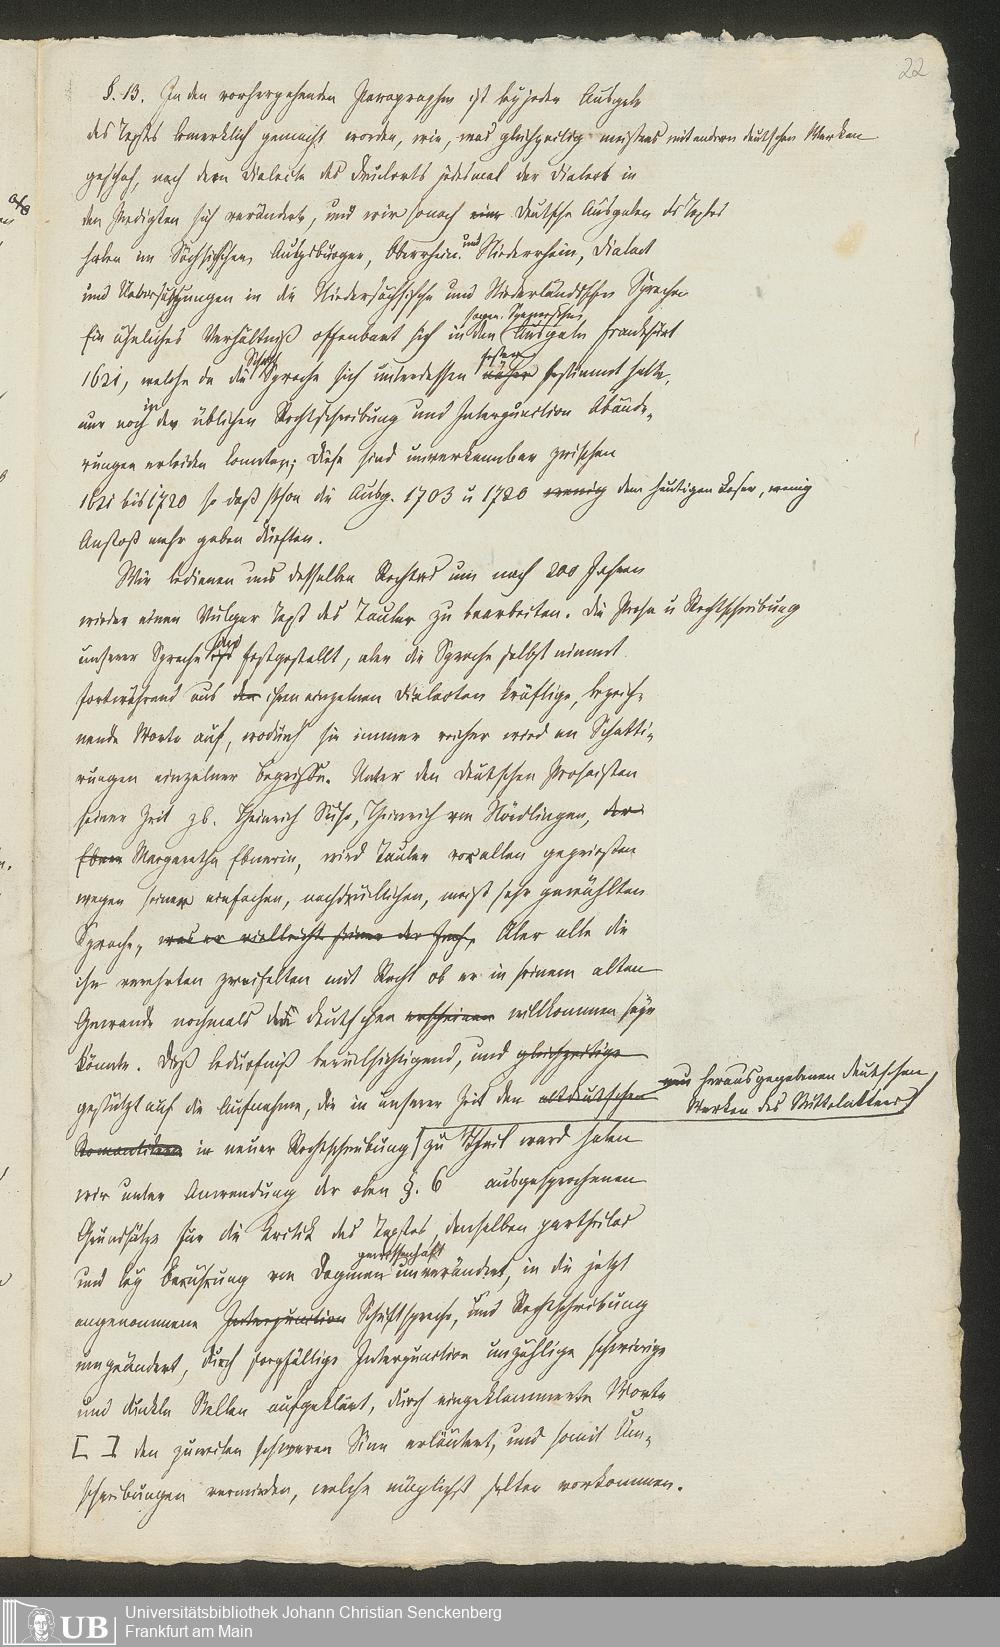 22
§. 13. In den vorhergehenden Paragraphen ist bey jeder Ausgabe
des Textes bemerklich gemacht worden, wie, was gleichzeitig meistens mit andern deutschen Werken
geschah, nach dem Dialecte des Druckorts jedesmal der Dialect in
den Predigten sich veränderte, und wir sonach eine deutsche Ausgaben des Textes
haben im Sächsischen, Augsburger, Oberrhein. und Niederrhein, Dialect
und Uebersetzungen in die Niedersächsische und Niederländischen Sprachen
Ein ähnliches Verhältniß offenbart sich in den sogen. Spenerschen Ausgaben Frankfurt
1621, welche da die Schrift Sprache sich unterdessen näher fester bestimmt hatte,
nur noch in der üblichen Rechtschreibung und Interpunction Abände-
rungen erleiden konnten; diese sind unverkennbar zwischen
1621 bis 1720 so daß schon die Ausg. 1703 u 1720 wenig dem heutigen Leser, wenig
Anstoß mehr geben dürften.
Wir bedienen uns desselben Rechtes um nach 200 Jahren
wieder einen Vulgar Text des Tauler zu bearbeiten. Die Prosa u Rechtschreibung
unserer Sprache ist sind festgestellt, aber die Sprache selbst nimmt
fortwährend aus den ihren einzelnen Dialecten kräftige, bezeich-
nende Worte auf, wodurch sie immer reicher wird an Schatti-
rungen einzelner Begriffe. Unter den deutschen Prosaisten
seiner Zeit zb. Heinrich Suso, Heinrich von Nördlingen, der
Eben Margaretha Ebnerin, wird Tauler vor allen gepriesen
wegen seiner einfachen, nachdrücklichen, meist sehr gewählten
Sprache, was er vielleicht seiner der Aber alle die
ihn verehrten zweifelten mit Recht ob er in seinem alten
Gewande nochmals den deutschen erscheinen willkommen seyn
könnte. Dieß Bedürfniß berücksichtigend, und gleichzeitige
gestützt auf die Aufnahme, die in unserer Zeit den altdeutschen neu herausgegebenen deutschen
Werken des Mittelalters
Romantikern in neuer Rechtschreibung zu Theil ward haben
wir unter Anwendung der oben §. 6 ausgesprochenen
Grundsätze für die Kritik des Textes, denselben partheilos
und bey Berührung von Dogmen gewissenhaft unverändert, in die jetzt
angenommene Interpunction Schriftsprache, und Rechtschreibung
umgeändert, durch sorgfältige Interpunction unzählige schwierige
und dunkle Stellen aufgeklärt, durch eingeklammerte Worte
[ ] den zuweilen schweren Sinn erläutert, und somit Um-
schreibungen vermieden, welche möglichst selten vorkommen.
UB
Universitätsbibliothek Johann Christian Senckenberg
Frankfurt am Main